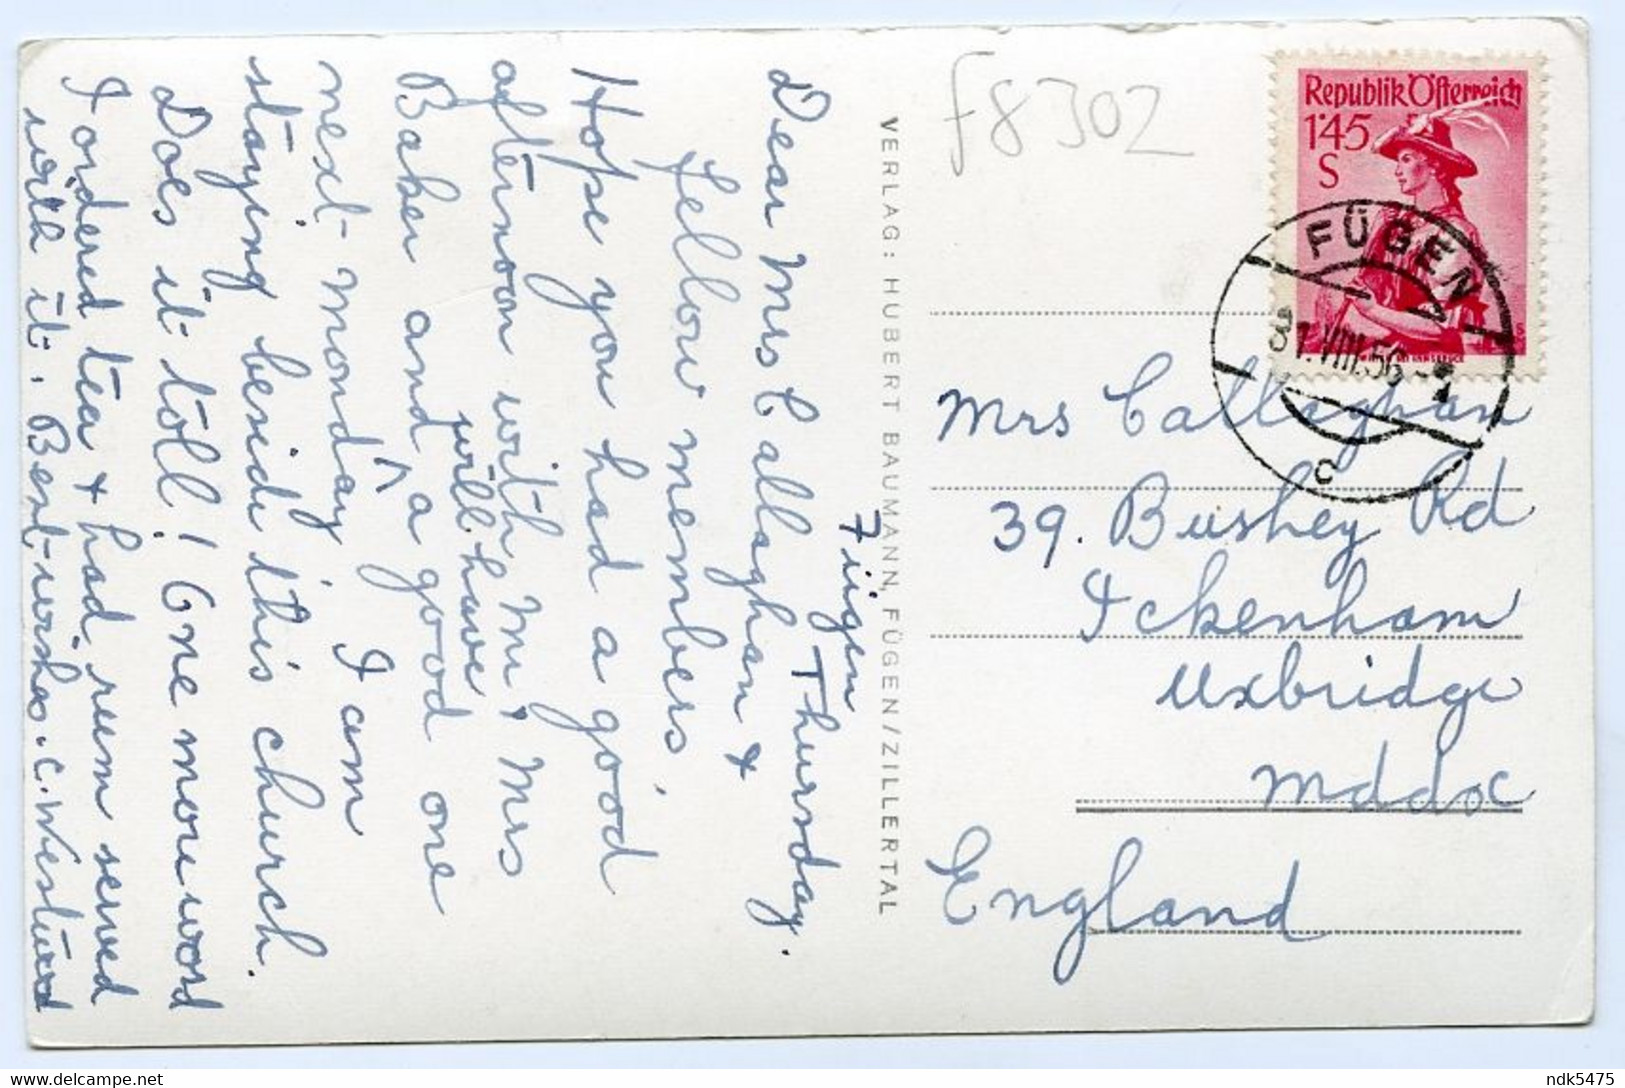 Fügen
Thursday.
Dear Mrs Callaghan &
fellow members,
Hope you had a good
afternoon with Mr & Mrs
Baker and will have a good one
next Monday. I am
staying beside this church.
Does it toll! One more word
I ordered tea & had rum served
with it. Best wishes. C. Westwood
VERLAG: HUBERT BAUMANN, FÜGEN/ZILLERTAL
F8302
Republik Österreich
1'45
S
FÜGEN
31.VIII.56
c
Mrs Callaghan
39. Bushey Rd
Ickenham
Uxbridge
Mddx
England
ndk5475